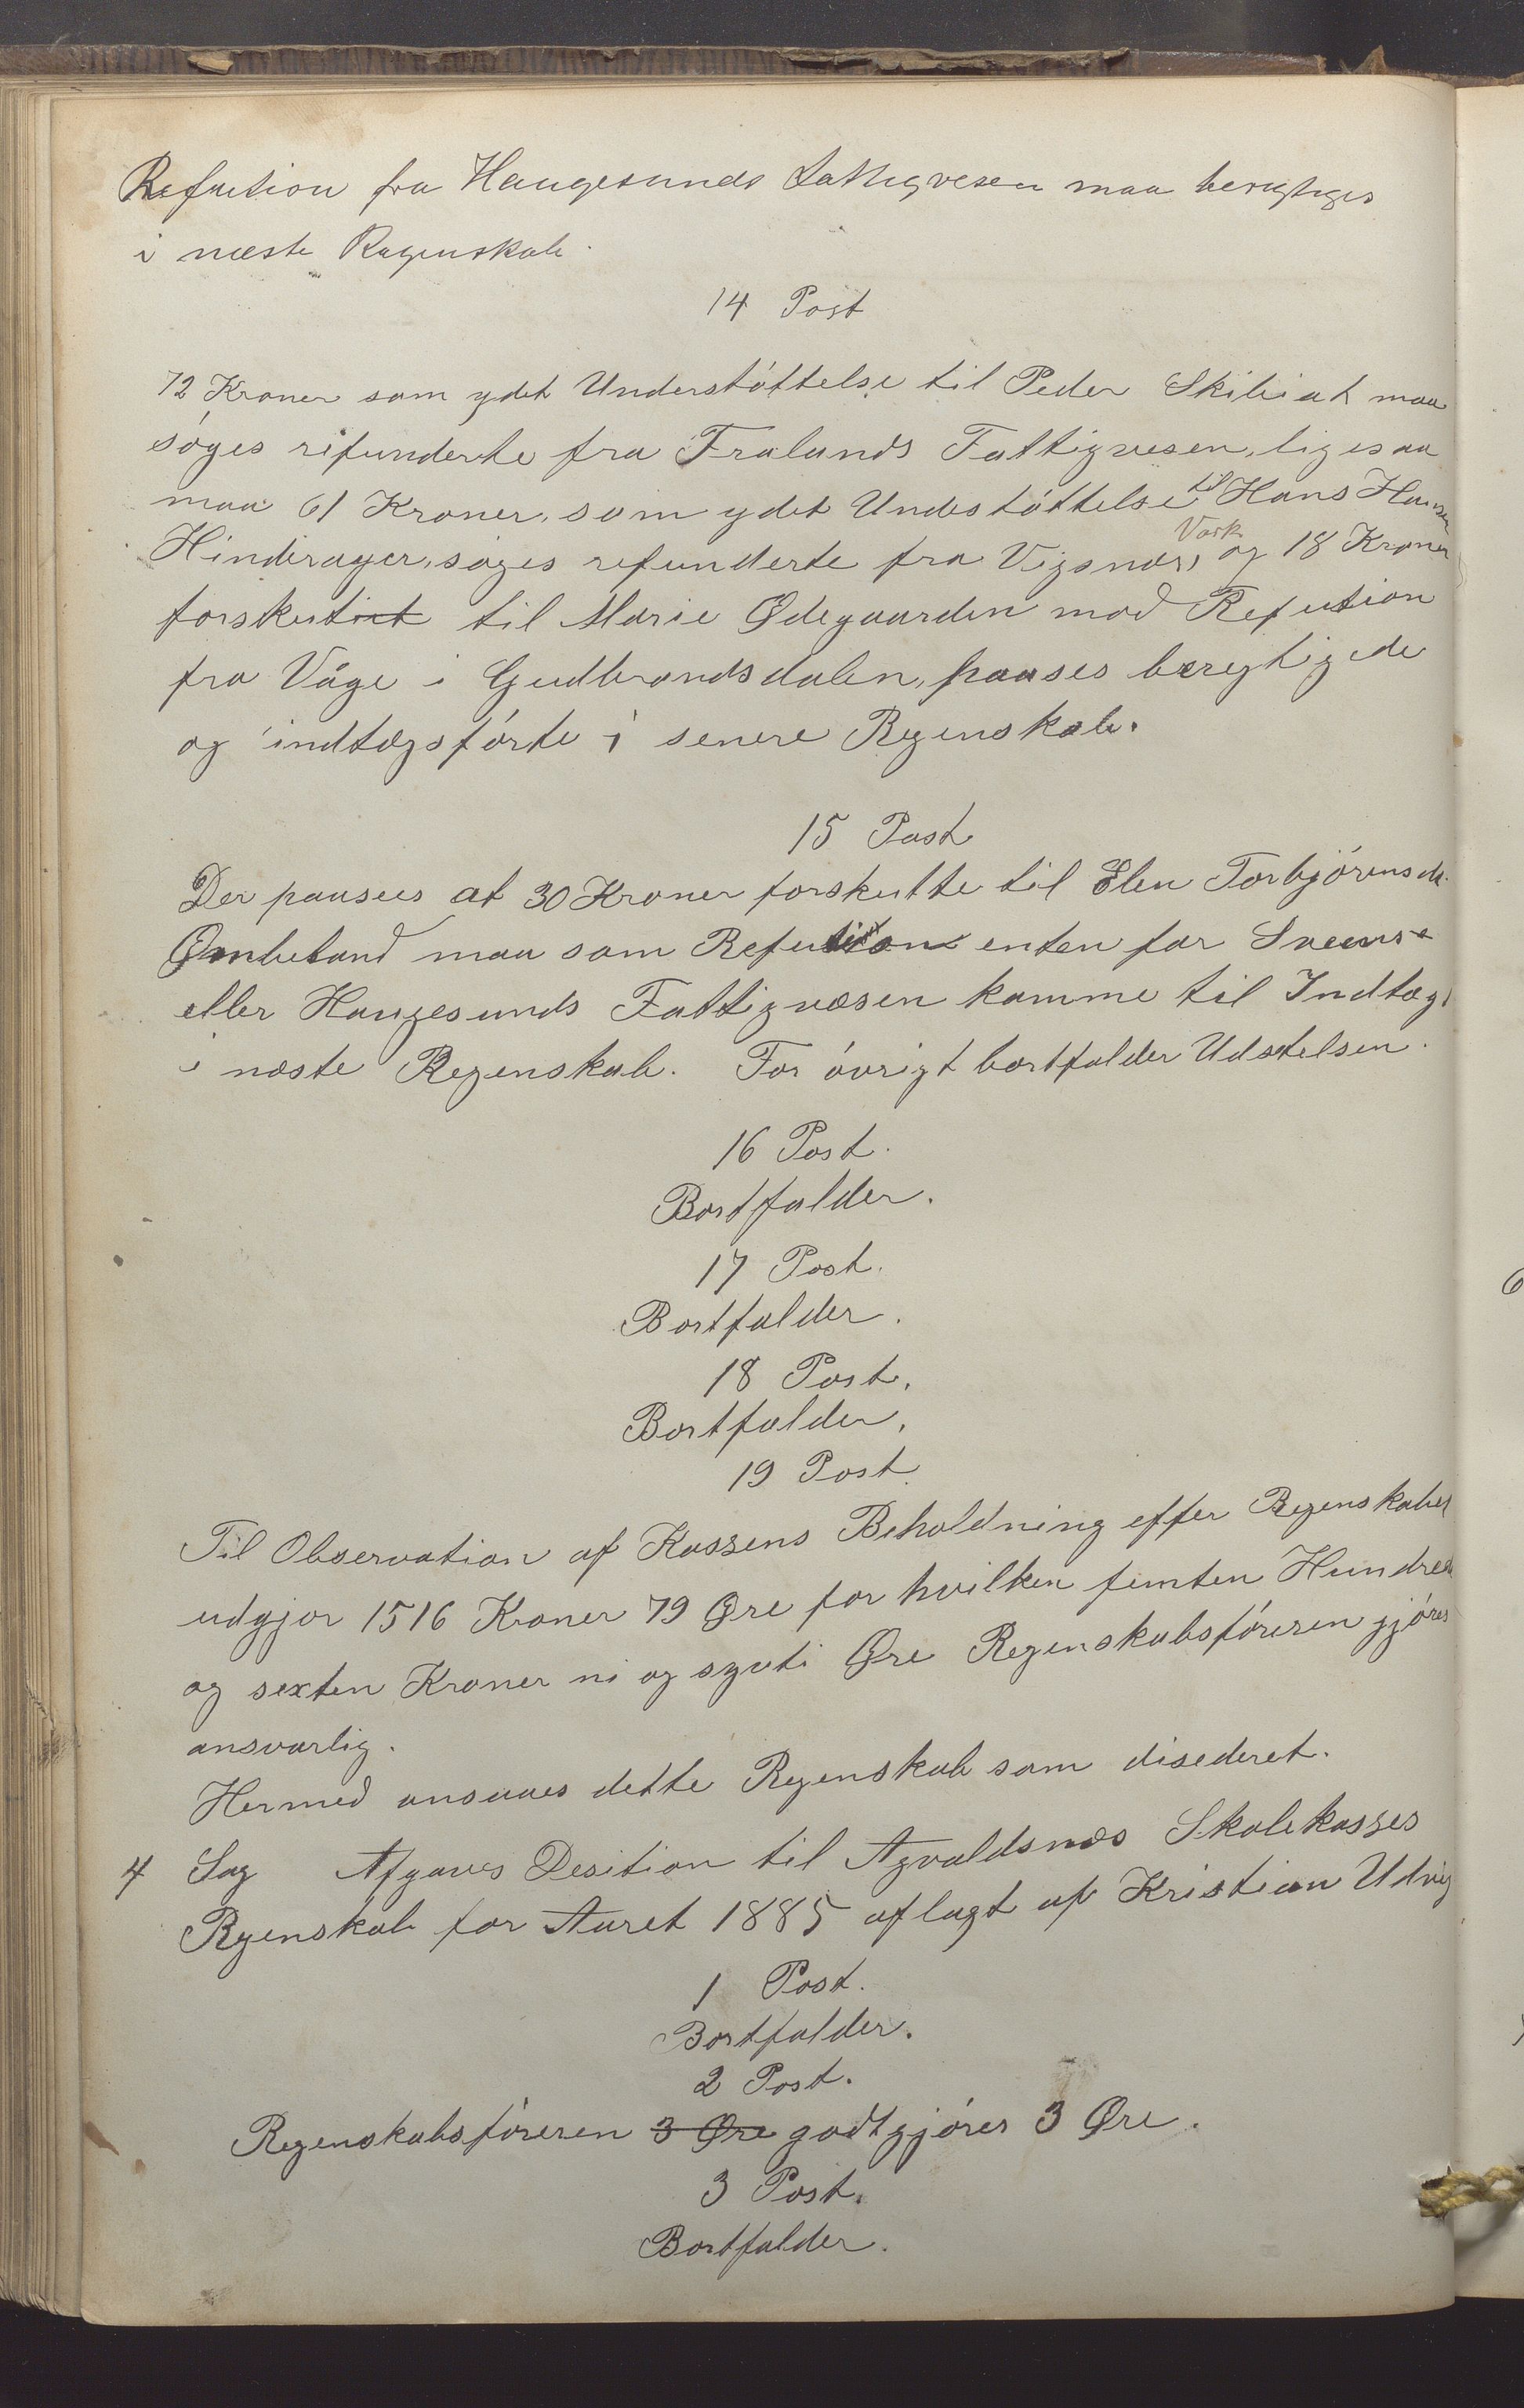 Refution fra Haugesunds Fattigvesen maa berigtiges
i næste Regenskab.
14 Post
72 Kroner som ydet Understöttelse til Peder Skibiat maa
söges refunderte fra Fralands Fattigvesen, ligesaa
maa 61 Kroner, som ydet Undestöttelse til Hans Hansen
Hinderager, söges refunderte fra Vigsnæs Værk og 18 Kroner
forskutict til Marie Ødegaarden mod Refution
fra Våge i Gudbrandsdalen, paases beregtigede
og indtægsförte i senere Regenskab.
15 Post
Der paasees at 30 Kroner forskutte til Elen Torbjörensdt.
maa som Refution enten for
eller Haugesunds Fattigvæsen komme til Indtægt
i næste Regenskab. For övrigt bortfalder Udstelsen.
16 Post.
Bortfalder.
17 Post.
Bortfalder.
18 Post.
Bortfalder.
19 Post
Til Observation af Kassens Beholdning efter Regenskabet
udgjor 1516 Kroner 79 Øre for hvilken femten Hundrede
og sexten Kroner ni og syvti Øre Regenskabsföreren gjöres
ansvarlig.
Hermed ansaaes dette Regenskab som disederet.
4 Sag Afgaves Desition til Agvaldsnæs Skolekasses
Regenskab for Aaret 1885 aflagt af Kristian Udvig
1 Post.
Bortfalder.
2 Post.
Regenskabsföreren 3 Øre godtgjöres 3 Øre.
3 Post.
Bortfalder.